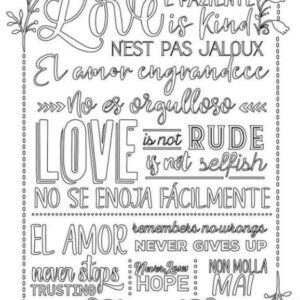 Love È PAZIENTE
is kind
N'EST PAS JALOUX
El amor engrandece
No es orgulloso
LOVE is not RUDE
is not selfish
NO SE ENOJA FÁCILMENTE
EL AMOR remembers no wrongs
NEVER GIVES UP
never stops
TRUSTING
Never Loses
HOPE
NON MOLLA
MAI